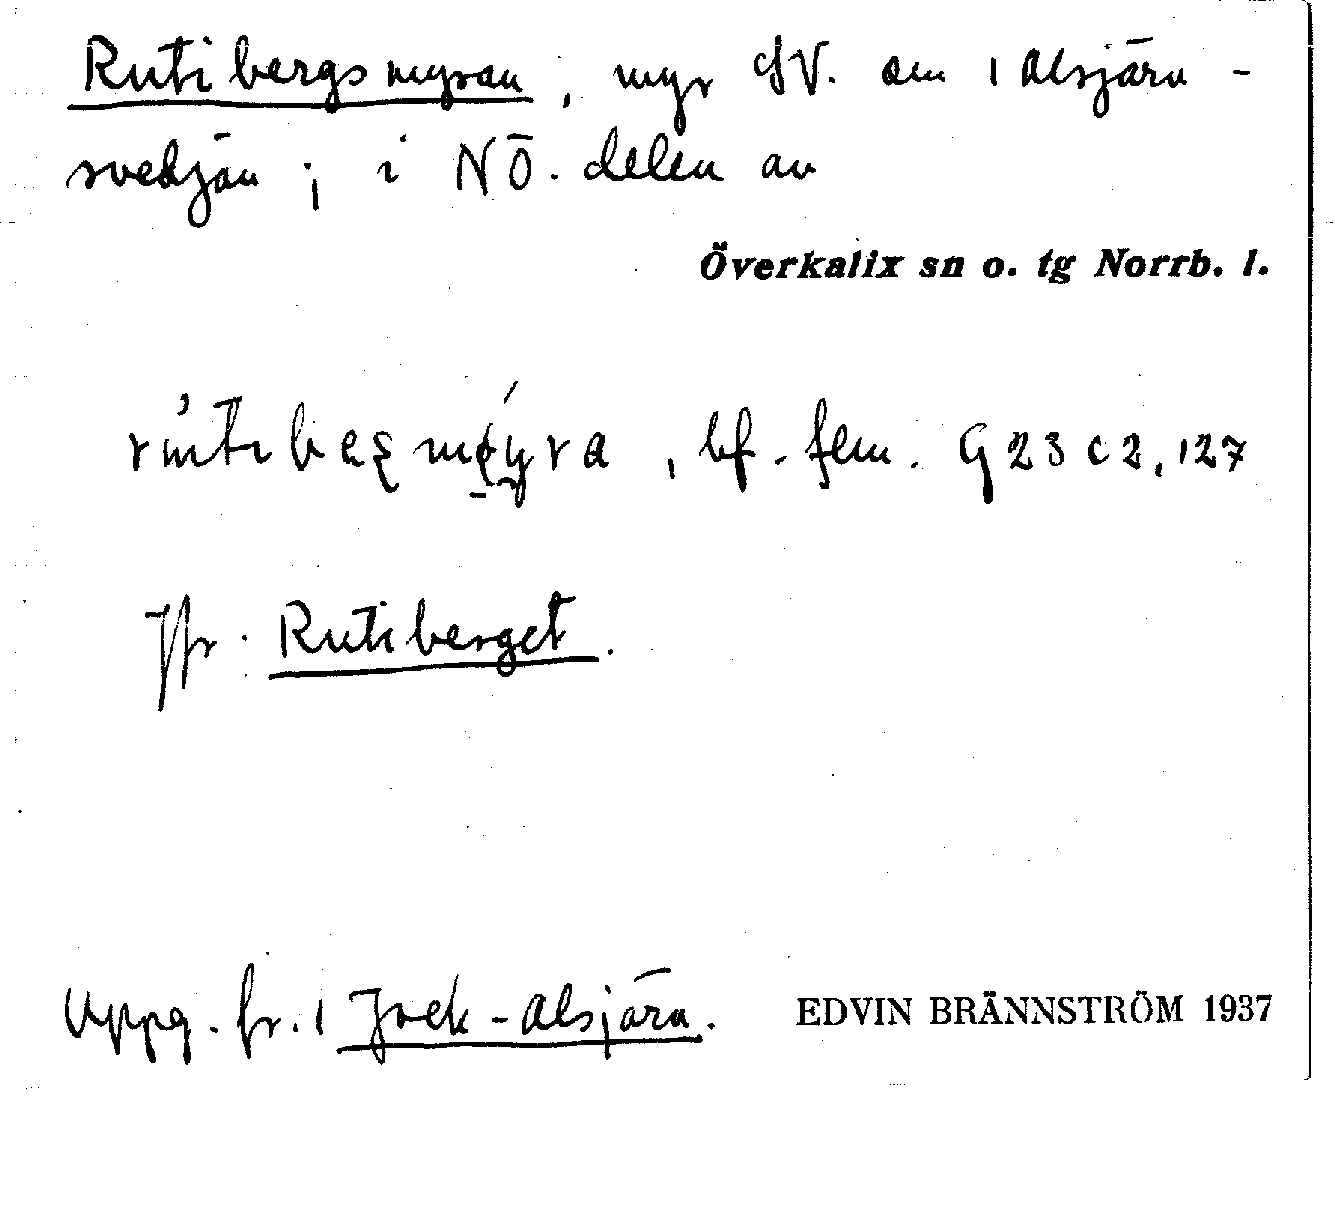 Rutibergsmyran, myr SV. om 1 Alsjärn-
svedjan; i NÖ. delen av
Överkalix sn o. tg Norrb. l.
, bf. fem. G 23 c 2, 127
Jfr. Rutiberget.
Uppg. fr. 1 Jock-Alsjärn. EDVIN BRÄNNSTRÖM 1937